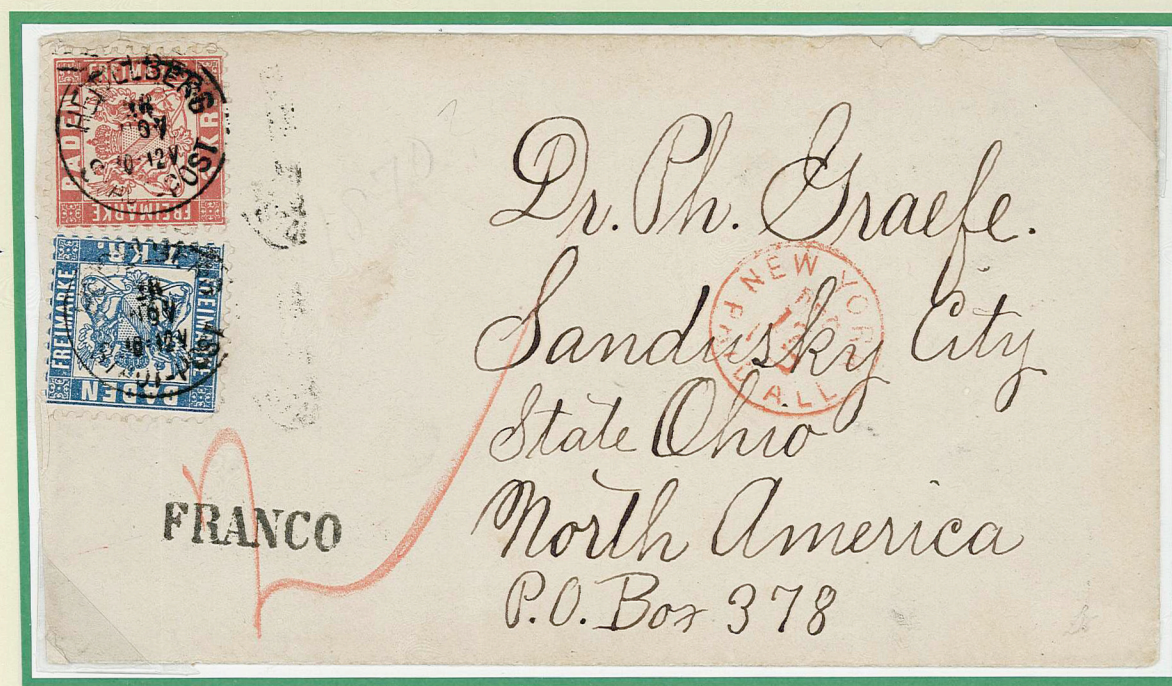 BADEN
FREIMARKE
HEIDELBERG
18
NOV
10-12V.
FREIMARKE
BADEN
18
NOV
10-12V
FRANCO
NEW YORK
ALL
Dr. Ph. Graefe.
Sandusky City
State Ohio
North America
P.O. Box 378